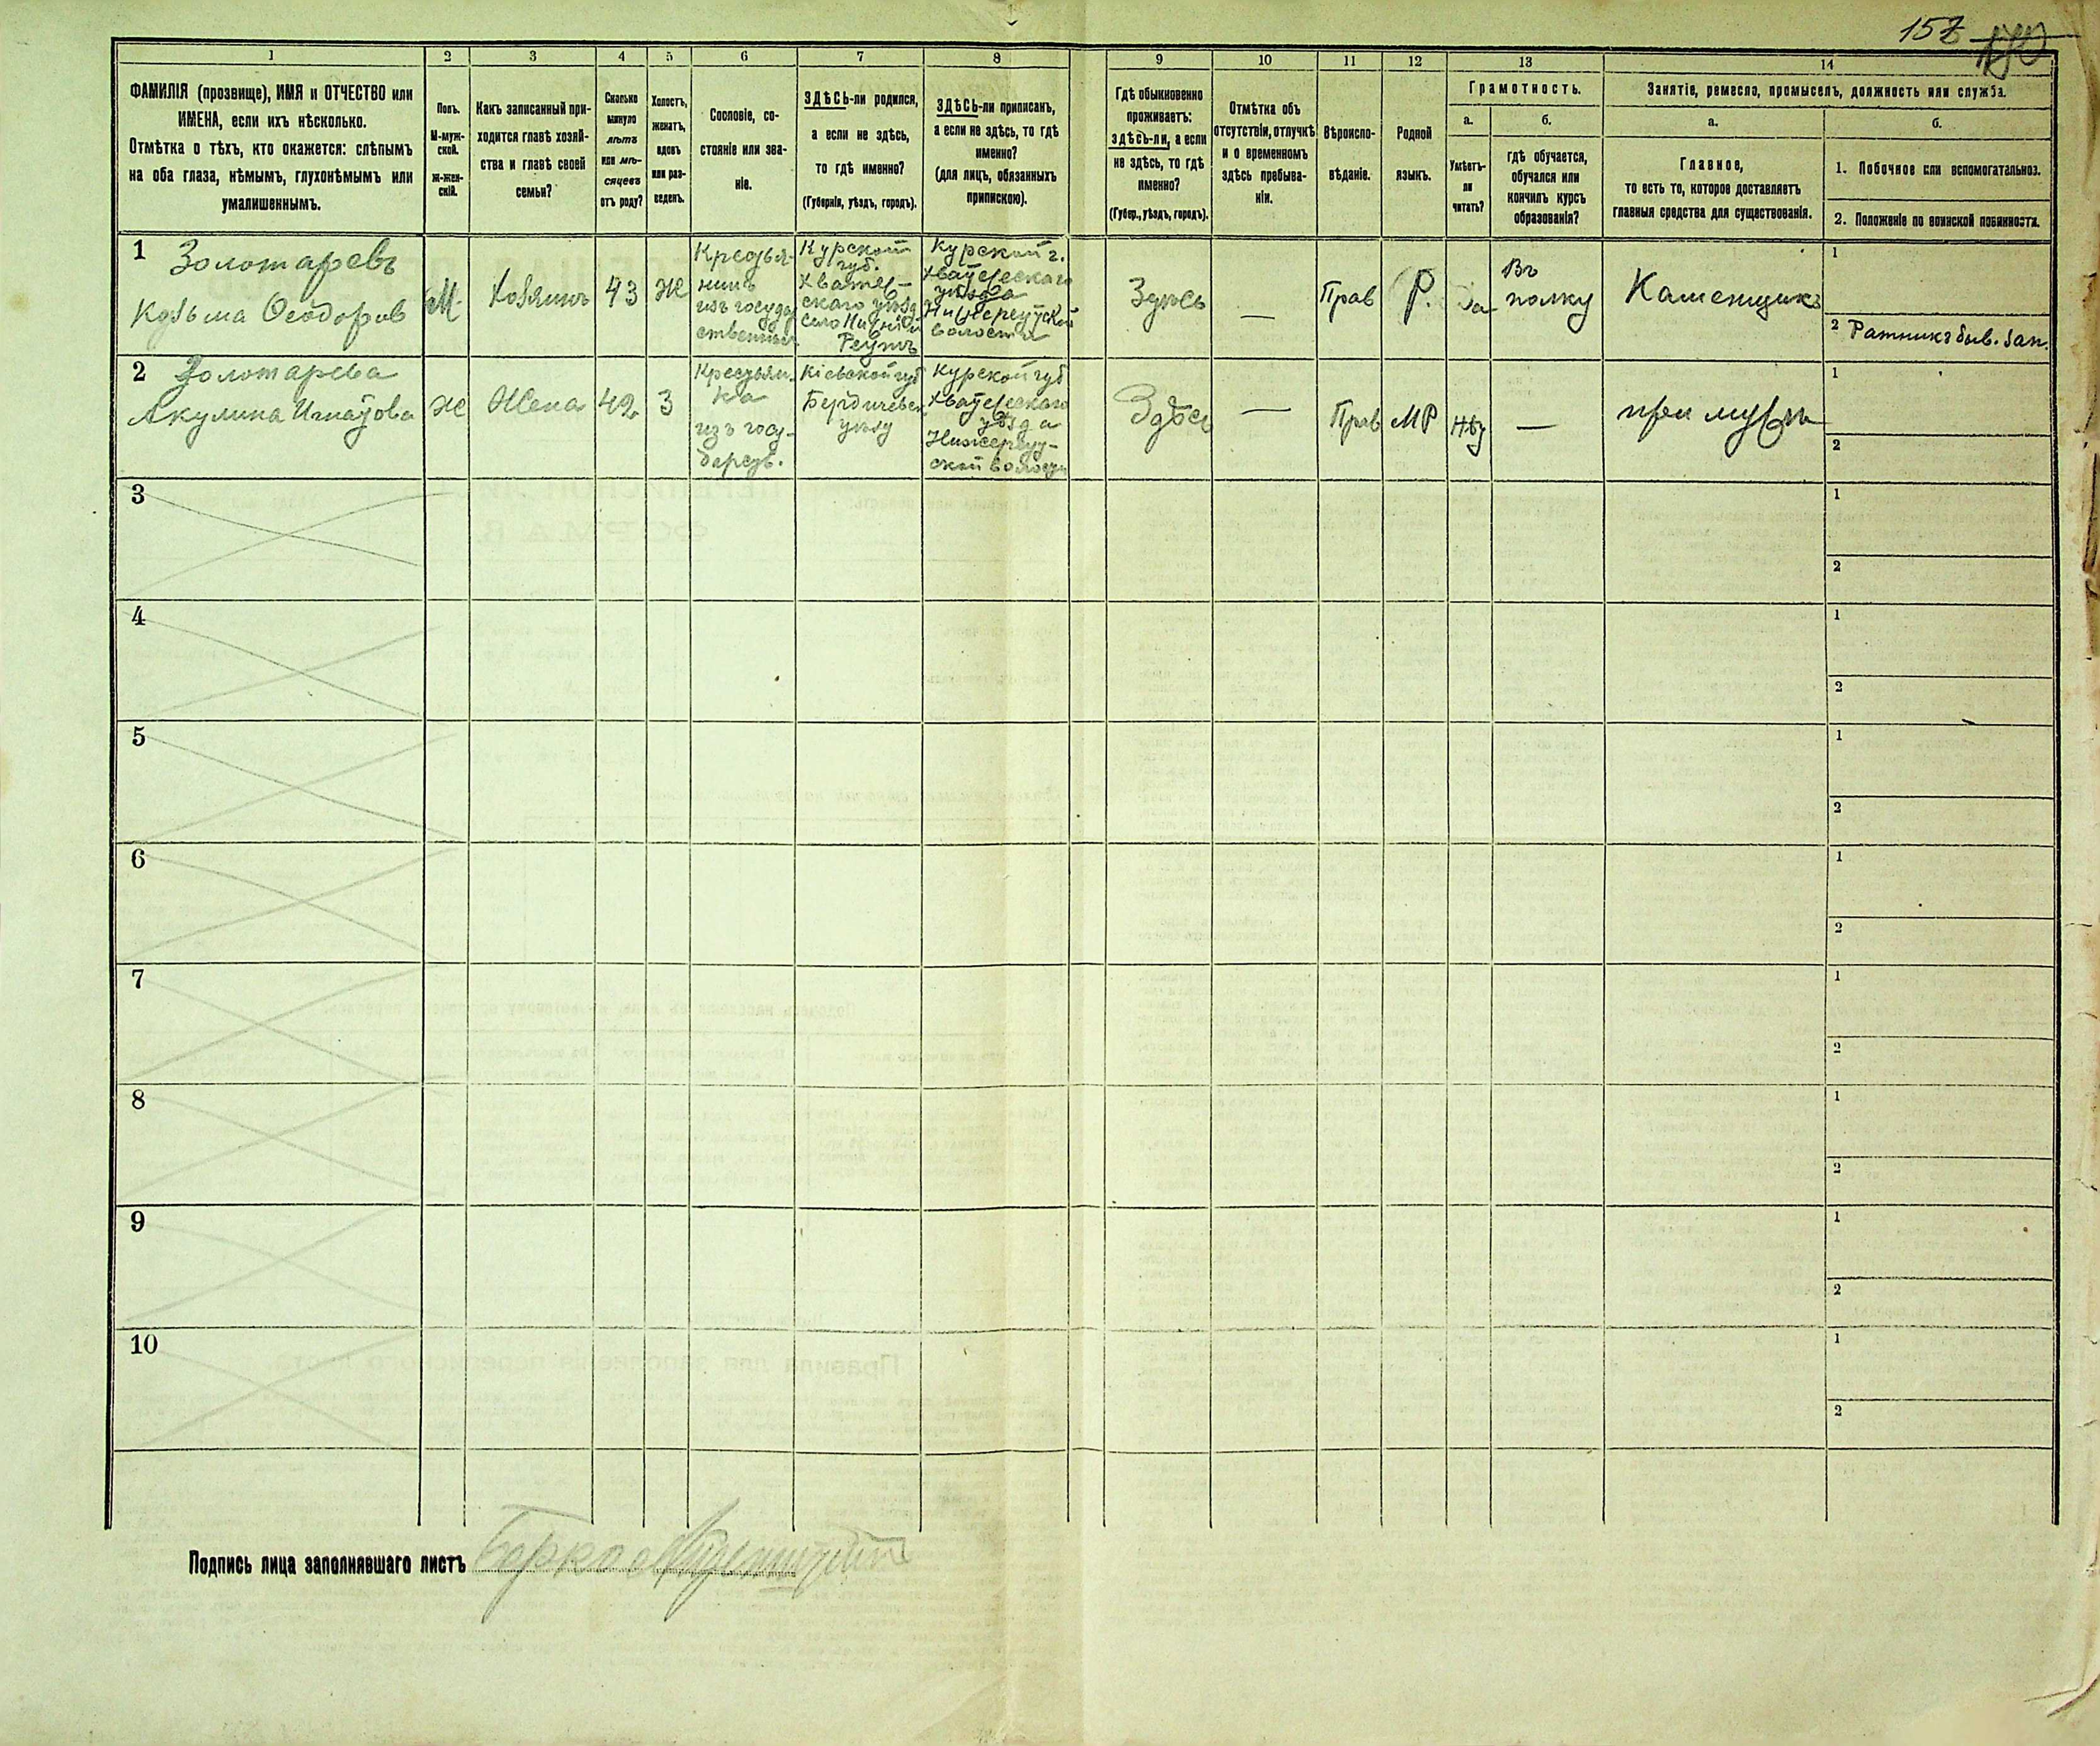 157
1 2 3 4 5 6 7 8 9 10 11 12 13 14
ФАМИЛІЯ (прозвище), ИМЯ и ОТЧЕСТВО или
ИМЕНА, если ихъ нѣсколько.
Отмѣтка о тѣхъ, кто окажется: слѣпымъ
на оба глаза, нѣмымъ, глухонѣмымъ или
умалишеннымъ.
Полъ.
М-муж-
ской.
ж-жен-
скій.
Какъ записанный при-
ходится главѣ хозяй-
ства и главѣ своей
семьи?
Сколько
минуло
лѣтъ
или мѣ-
сяцевъ
отъ роду?
Холостъ,
женатъ,
вдовъ
или раз-
веденъ.
Сословіе, со-
стояніе или зва-
ніе.
ЗДѢСЬ-ли родился,
а если не здѣсь,
то гдѣ именно?
(Губернія, уѣздъ, городъ).
ЗДѢСЬ-ли приписанъ,
а если не здѣсь, то гдѣ
именно?
(для лицъ, обязанныхъ
припискою).
Гдѣ обыкновенно
проживаетъ:
здѣсь-ли, а если
не здѣсь, то гдѣ
именно?
(Губер., уѣздъ, городъ).
Отмѣтка объ
отсутствіи, отлучкѣ
и о временномъ
здѣсь пребыва-
ніи.
Вѣроиспо-
вѣданіе.
Родной
языкъ.
Грамотность.
а.
Умѣетъ-
ли
читать?
б.
гдѣ обучается,
обучался или
кончилъ курсъ
образованія?
Занятіе, ремесло, промыселъ, должность или служба.
а.
Главное,
то есть то, которое доставляетъ
главныя средства для существованія.
б.
1. Побочное или вспомогательное.
2. Положеніе по воинской повинности.
1 Золотаревъ
Козьма Ѳеодоров
М
Хозяинъ
43
Ж
Крестья-
нинъ
изъ государ
ственныхъ
Курской
губ.
Хватев-
скаго уѣзда
село Нижній
Реутъ
Курской г.
уѣзда
волости
Здѣсь
—
Прав
Р.
Да
Въ
полку
Каменщикъ
1
2 Ратникъ быв. зап.
2 Золотарева
Акулина Игнатова
Ж
Жена
42
З
Крестьян-
ка
изъ госу-
дарств.
Кіевской губ
Бердичевск
уѣзду
Курской губ
уѣзда
Нижереут-
ской волости
Здѣсь
—
Прав
МР
Нѣт
—
при мужѣ
1
2
3
1
2
4
1
2
5
1
2
6
1
2
7
1
2
8
1
2
9
1
2
10
1
2
Подпись лица заполнявшаго листъ